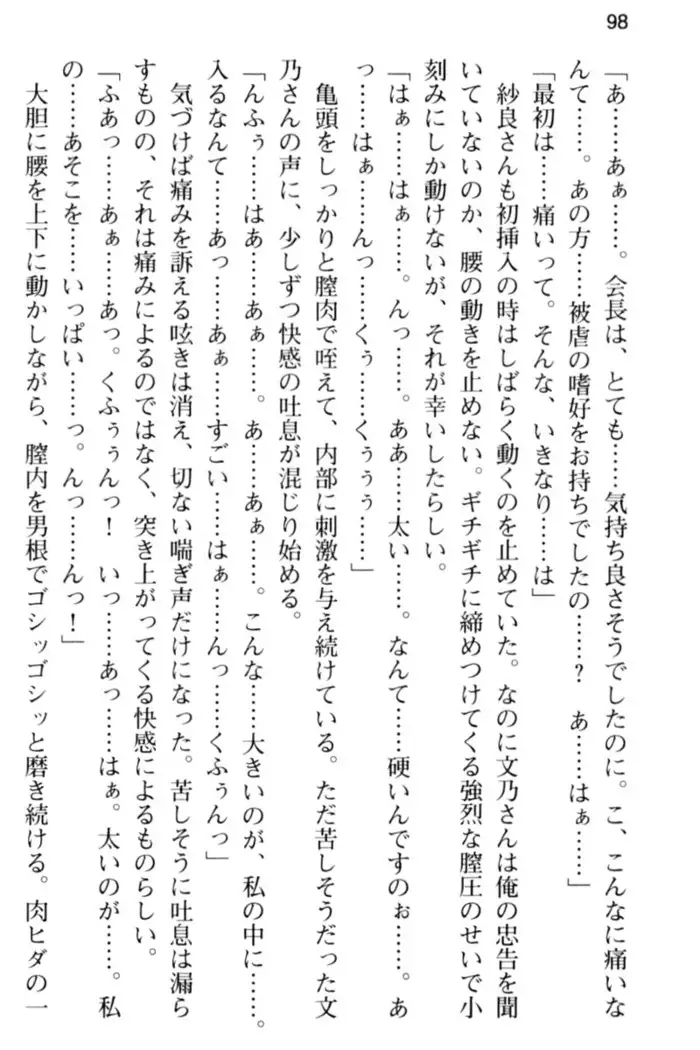 98
「あ……あぁ……。会長は、とても……気持ち良さそうでしたのに。こ、こんなに痛いな
んて……。あの方……被虐の嗜好をお持ちでしたの……? あ……はぁ……」
「最初は……痛いって。そんな、いきなり……は」
紗良さんも初挿入の時はしばらく動くのを止めていた。なのに文乃さんは俺の忠告を聞
いていないのか、腰の動きを止めない。ギチギチに締めつけてくる強烈な膣圧のせいで小
刻みにしか動けないが、それが幸いしたらしい。
「はぁ……はぁ……。んっ……。ああ……太い……。なんて……硬いんですのぉ……。あ
っ……はぁ……んっ……くぅ……くぅぅぅ……」
亀頭をしっかりと膣肉で咥えて、内部に刺激を与え続けている。ただ苦しそうだった文
乃さんの声に、少しずつ快感の吐息が混じり始める。
「んふぅ……はあ……あぁ……。あ……あぁ……。こんな……大きいのが、私の中に……。
入るなんて……あっ……あぁ……すごい……はぁ……んっ……くふぅんっ」
気づけば痛みを訴える呟きは消え、切ない喘ぎ声だけになった。苦しそうに吐息は漏ら
すものの、それは痛みによるのではなく、突き上がってくる快感によるものらしい。
「ふあっ……あぁ……あっ。くふぅぅんっ! いっ……あっ……はぁ。太いのが……。私
の……あそこを……いっぱい……っ。んっ……んっ!」
大胆に腰を上下に動かしながら、膣内を男根でゴシッゴシッと磨き続ける。肉ヒダの一